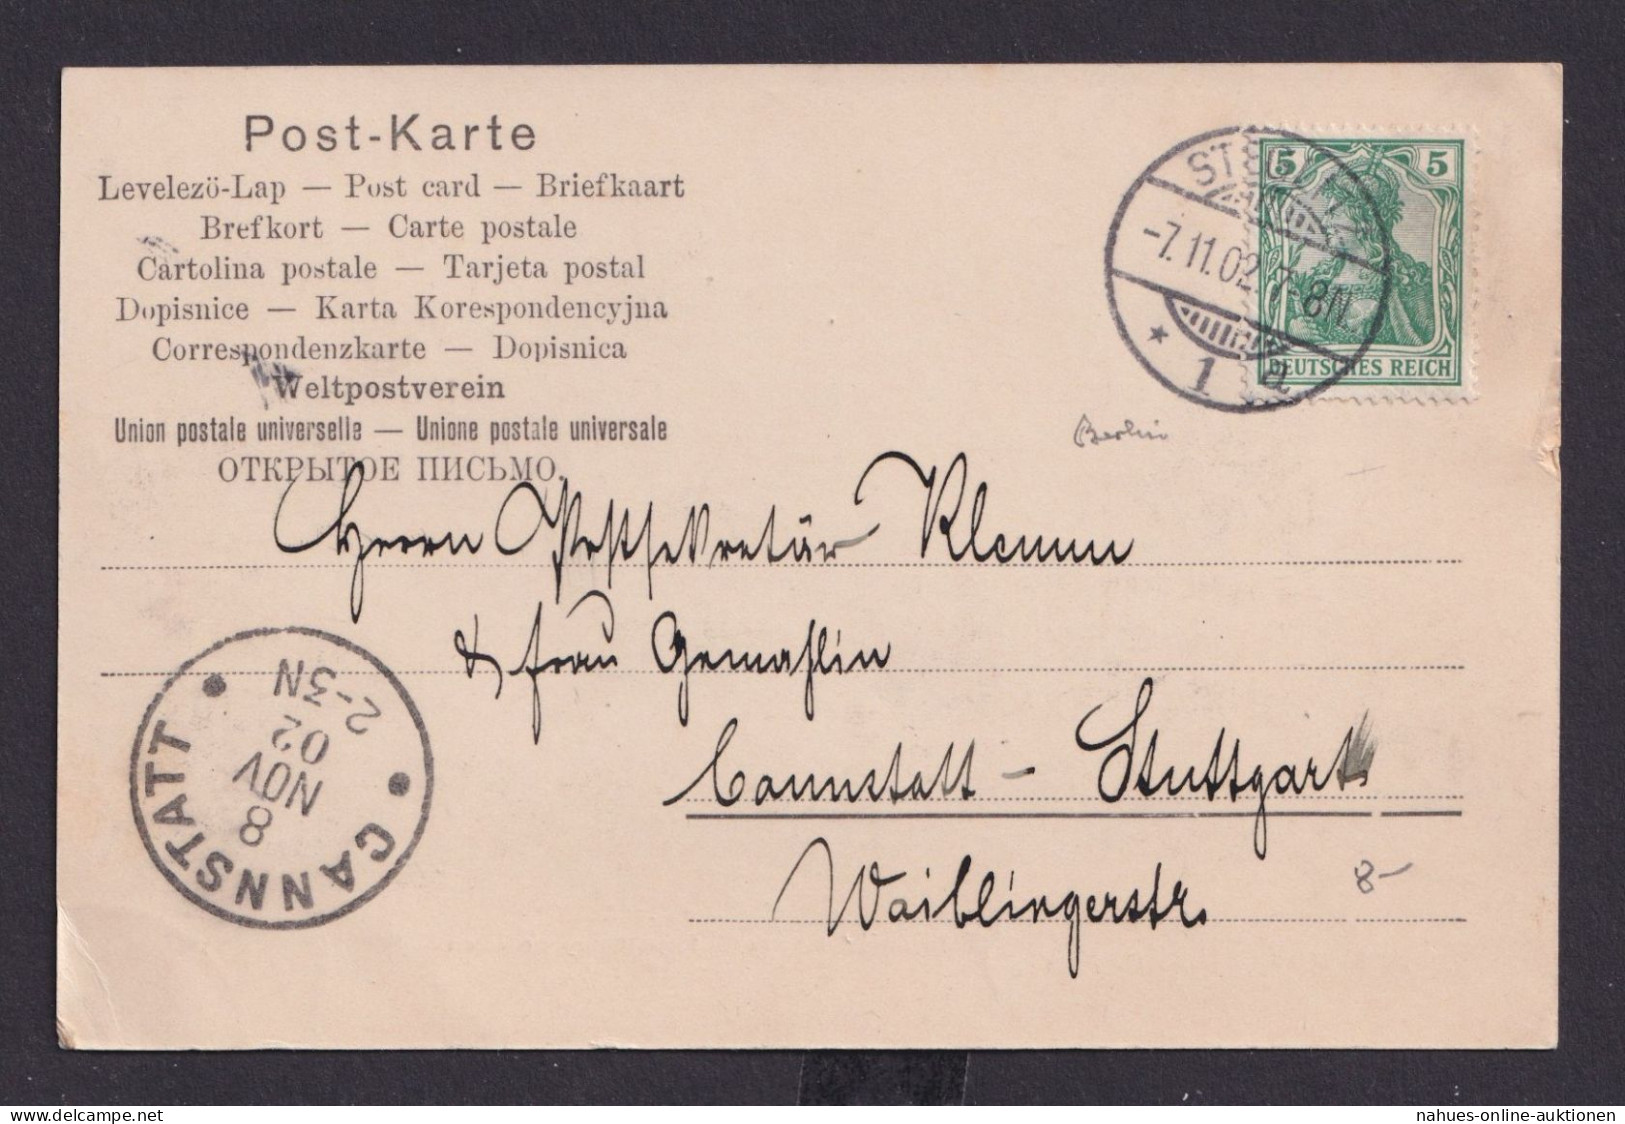 Post-Karte
Levelezö-Lap — Post card — Briefkaart
Brefkort — Carte postale
Cartolina postale — Tarjeta postal
Dopisnice — Karta Korespondencyjna
Correspondenzkarte — Dopisnica
Weltpostverein
Union postale universelle — Unione postale universale
ОТКРЫТОЕ ПИСЬМО.
-7.11.02.7-8N.
* 1 a
5 5
DEUTSCHES REICH
Berlin
Herrn Postsekretär Klemm
& Frau Gemahlin
Cannstatt - Stuttgart
Waiblingerstr.
8-
CANNSTATT
8
NOV
02
2-3N
delcampe.net
nahues-online-auktionen